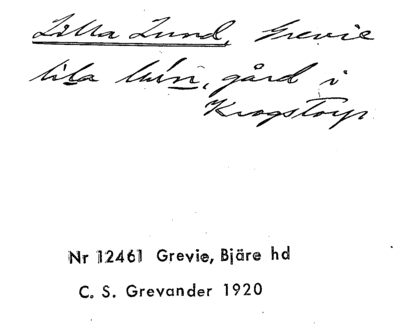 Lilla Lund, Grevie
lila lún, gård i
Krogstorp
Nr 12461 Grevie, Bjäre hd
C. S. Grevander 1920